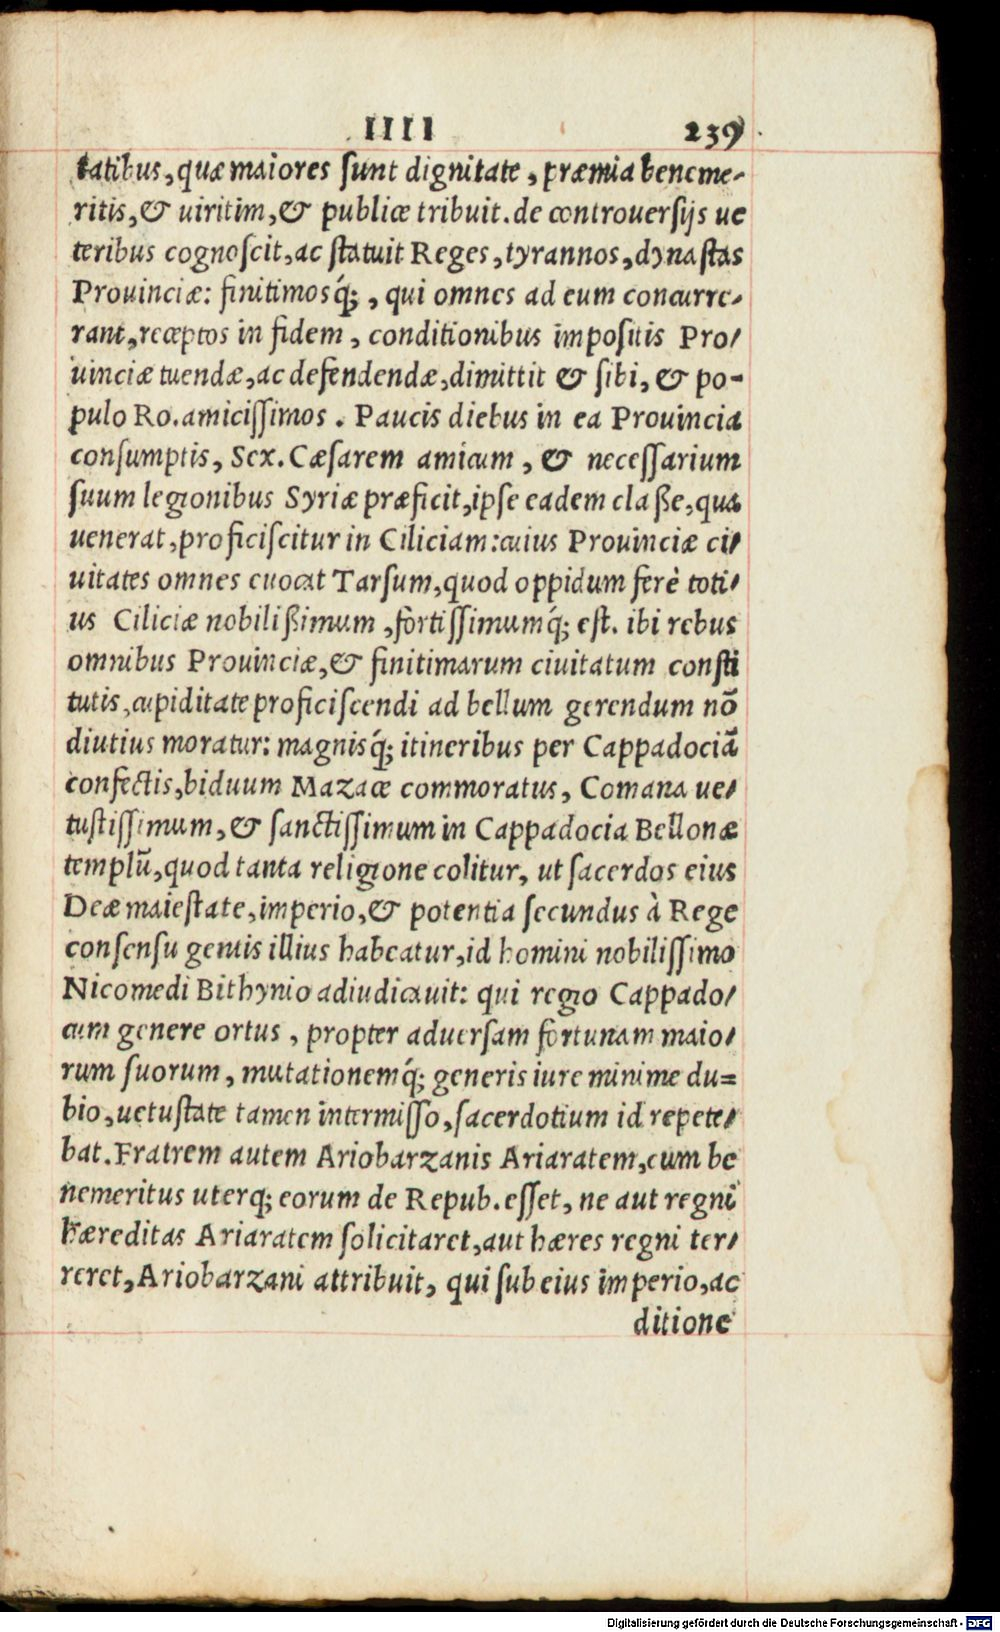 IIII 239
tatibus, quæ maiores sunt dignitate, præmia beneme-
ritis, & uiritim, & publicæ tribuit. de controuersijs ue
teribus cognoscit, ac statuit Reges, tyrannos, dynastas
Prouinciæ: finitimosq́;, qui omnes ad eum concurre-
rant, receptos in fidem, conditionibus impositis Pro-
uinciæ tuendæ, ac defendendæ, dimittit & sibi, & po-
pulo Ro. amicissimos. Paucis diebus in ea Prouincia
consumptis, Sex. Cæsarem amicum, & necessarium
suum legionibus Syriæ præficit, ipse eadem claße, qua
uenerat, proficiscitur in Ciliciam: cuius Prouinciæ ci-
uitates omnes euocat Tarsum, quod oppidum ferè toti-
us Ciliciæ nobilißimum, fortissimumq́; est. ibi rebus
omnibus Prouinciæ, & finitimarum ciuitatum consti
tutis, cupiditate proficiscendi ad bellum gerendum nō
diutius moratur: magnisq́; itineribus per Cappadociā
confectis, biduum Mazacæ commoratus, Comana ue-
tustissimum, & sanctissimum in Cappadocia Bellonæ
templū, quod tanta religione colitur, ut sacerdos eius
Deæ maiestate, imperio, & potentia secundus à Rege
consensu gentis illius habeatur, id homini nobilissimo
Nicomedi Bithynio adiudicauit: qui regio Cappado-
cum genere ortus, propter aduersam fortunam maio-
rum suorum, mutationemq́; generis iure minime du=
bio, uetustate tamen intermisso, sacerdotium id repete-
bat. Fratrem autem Ariobarzanis Ariaratem, cum be
nemeritus uterq; eorum de Repub. esset, ne aut regni
hæreditas Ariaratem solicitaret, aut hæres regni ter-
reret, Ariobarzani attribuit, qui sub eius imperio, ac
ditione
Digitalisierung gefördert durch die Deutsche Forschungsgemeinschaft - DFG